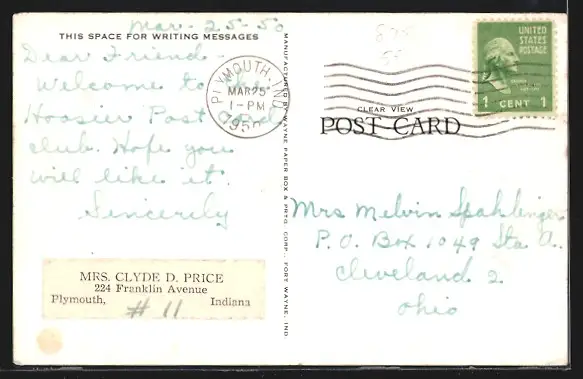 Mar-25-50
THIS SPACE FOR WRITING MESSAGES
Dear Friend
Welcome to the
Hoosier Post Card
club. Hope you
will like it.
Sincerely
MRS. CLYDE D. PRICE
224 Franklin Avenue
Plymouth, Indiana
# 11
MANUFACTURED BY WAYNE PAPER BOX & PRTG. CORP., FORT WAYNE, IND
PLYMOUTH, IND.
MAR 25
1-PM
1950
UNITED
STATES
POSTAGE
1 CENT 1
CLEAR VIEW
POST CARD
Mrs Melvin Spahlinger
P. O. Box 1049 Sta A.
Cleveland 2
Ohio